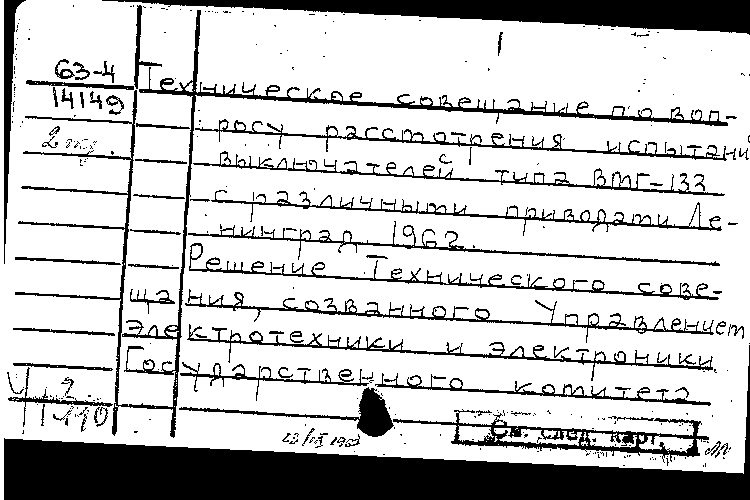 63-4
14149
Техническое совещание по воп-
росу расстотрения испытаний
выключателей типа ВМГ-133
с различными приводати Ле-
нинград. 1962.
Решение Технического сове-
щания, созванного Управлением
электротехники и электроники
Государственного комитета
См. след. карт.